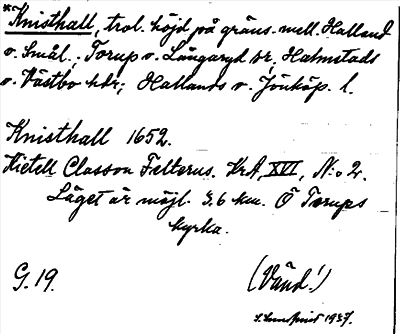 *Knisthall, trol. höjd på gräns. mell. Halland
o. Smål., Torup o. Långaryd sr, Halmstads
o. Västbo hdr; Hallands o. Jönköp. l.
Knisthall 1652.
Kietell Classon Felterus. KrA, XVI, N:o 2.
Läget är möjl. 3,6 km. Ö Torups
kyrka.
G. 19.
(Vänd!)
S. Lundqvist 1937.